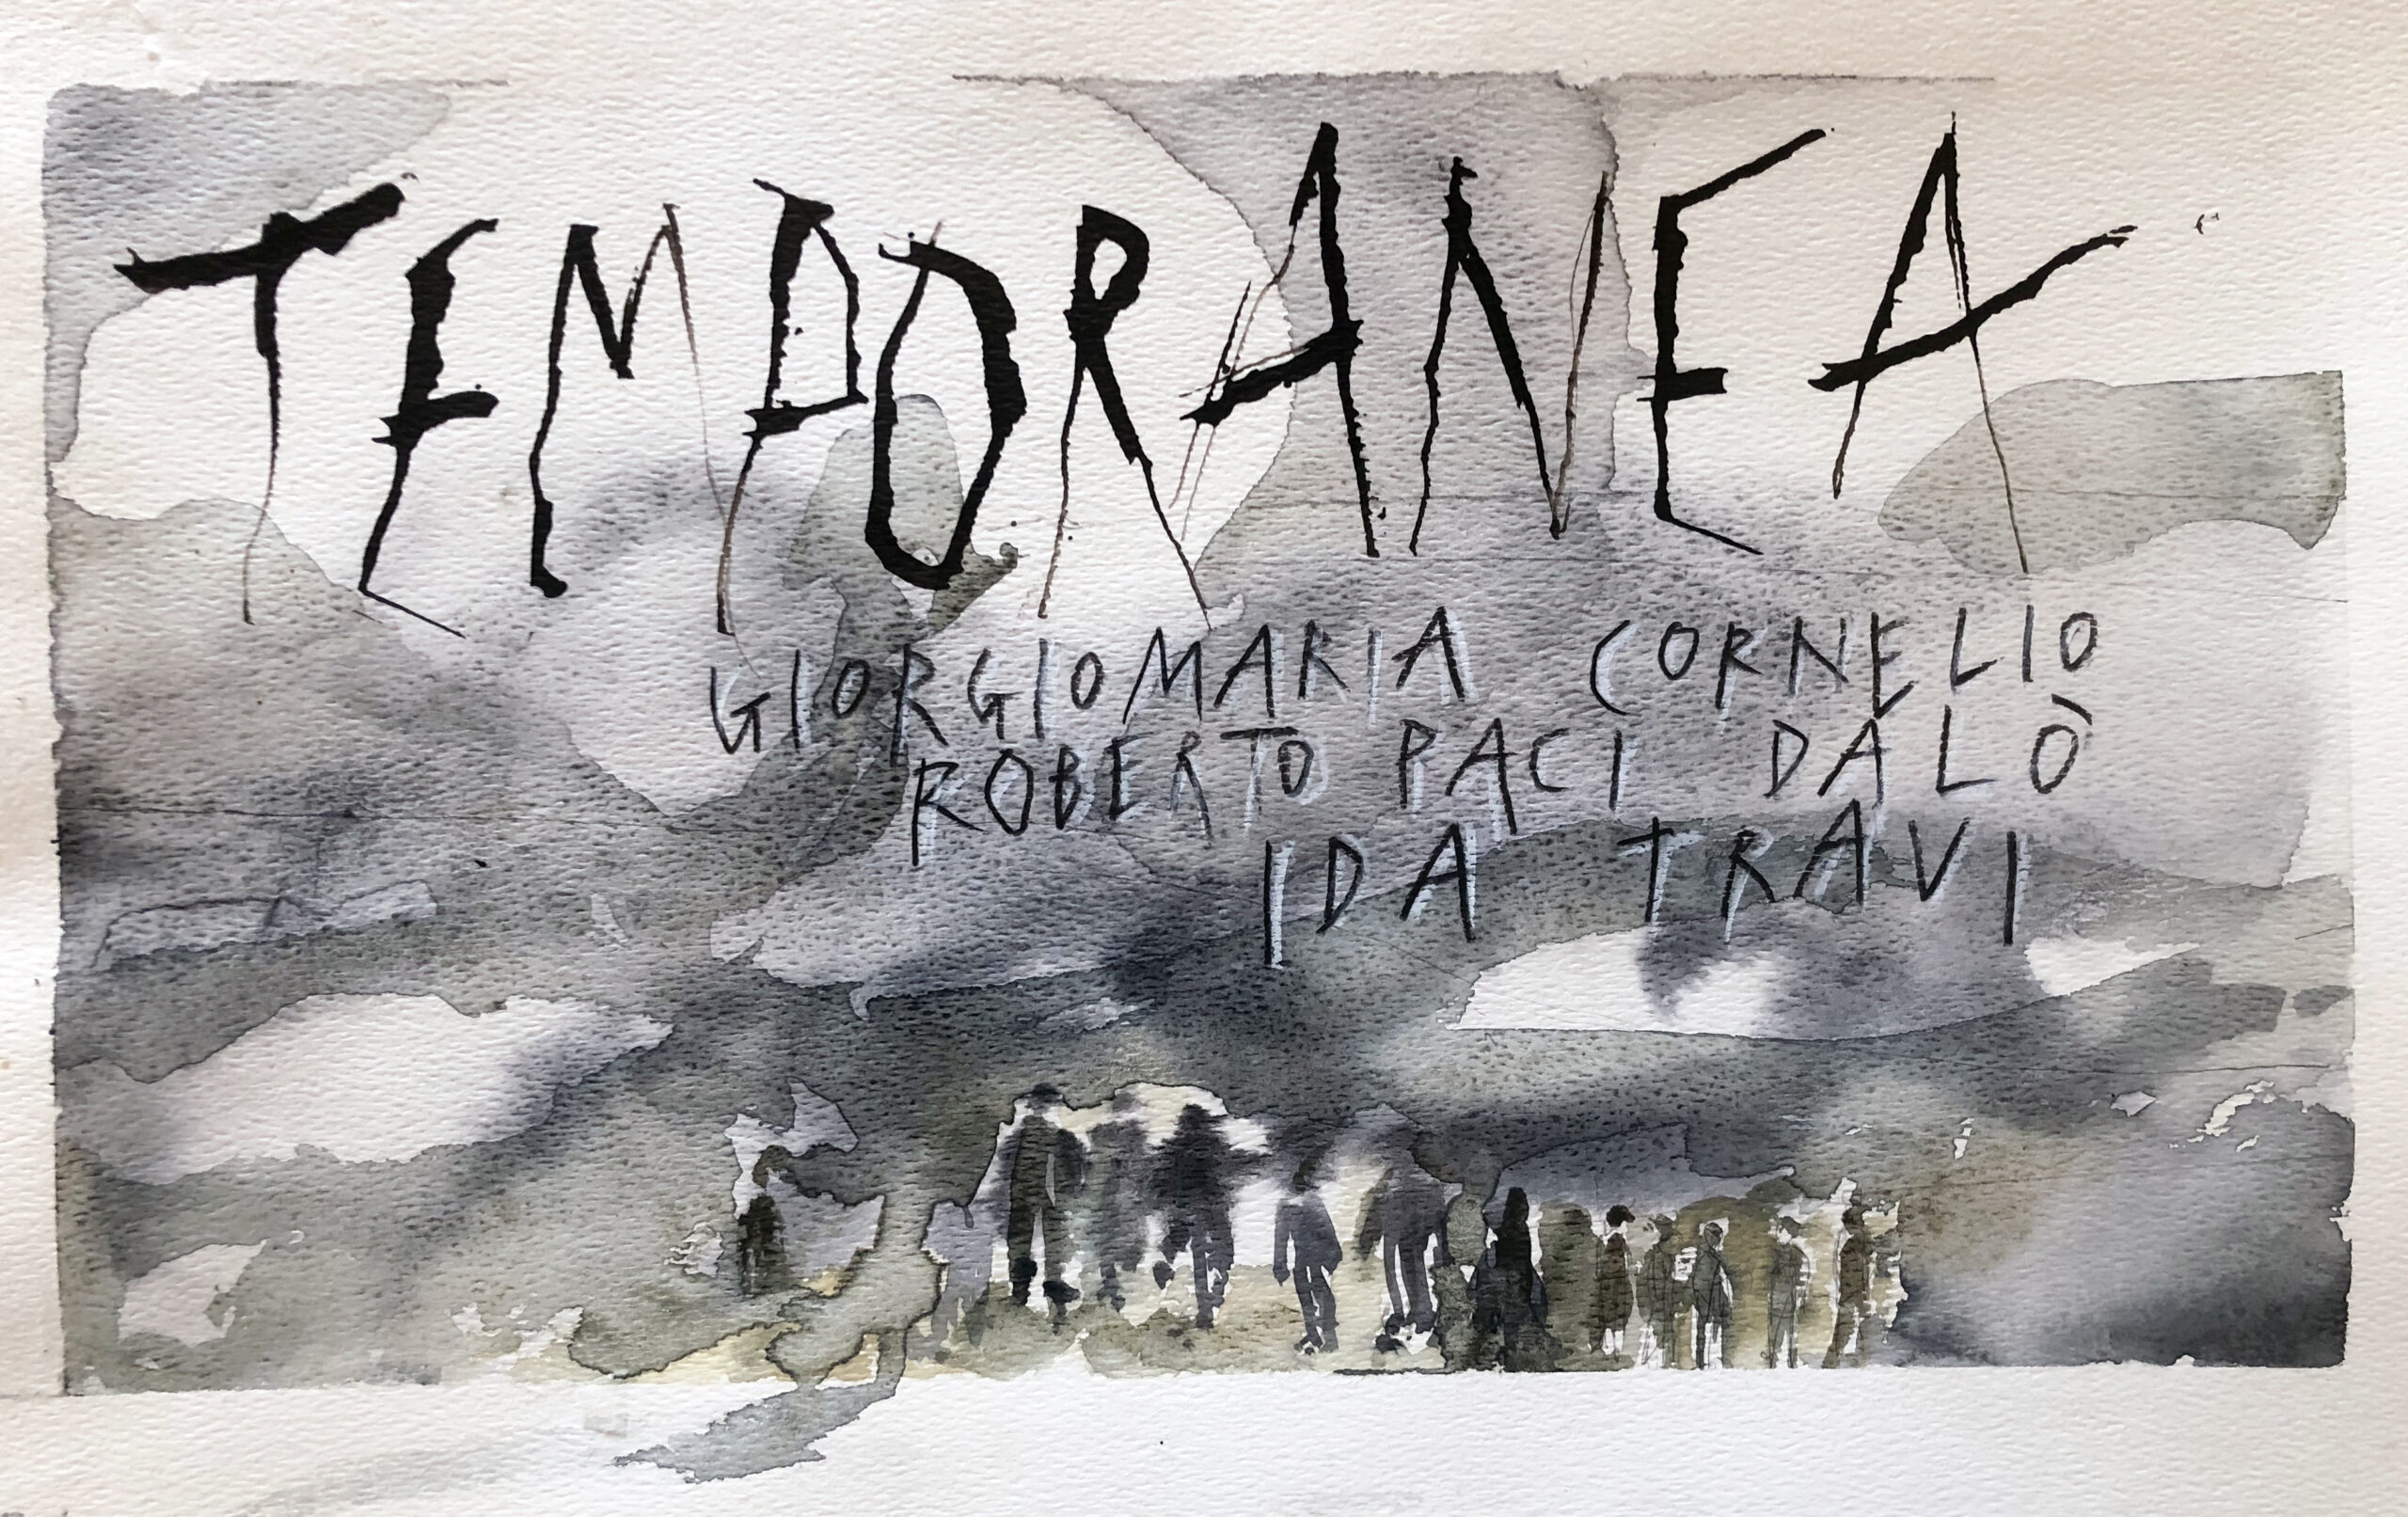 TEMPORANEA
GIORGIOMARIA CORNELIO
ROBERTO PACI DALÒ
IDA TRAVI